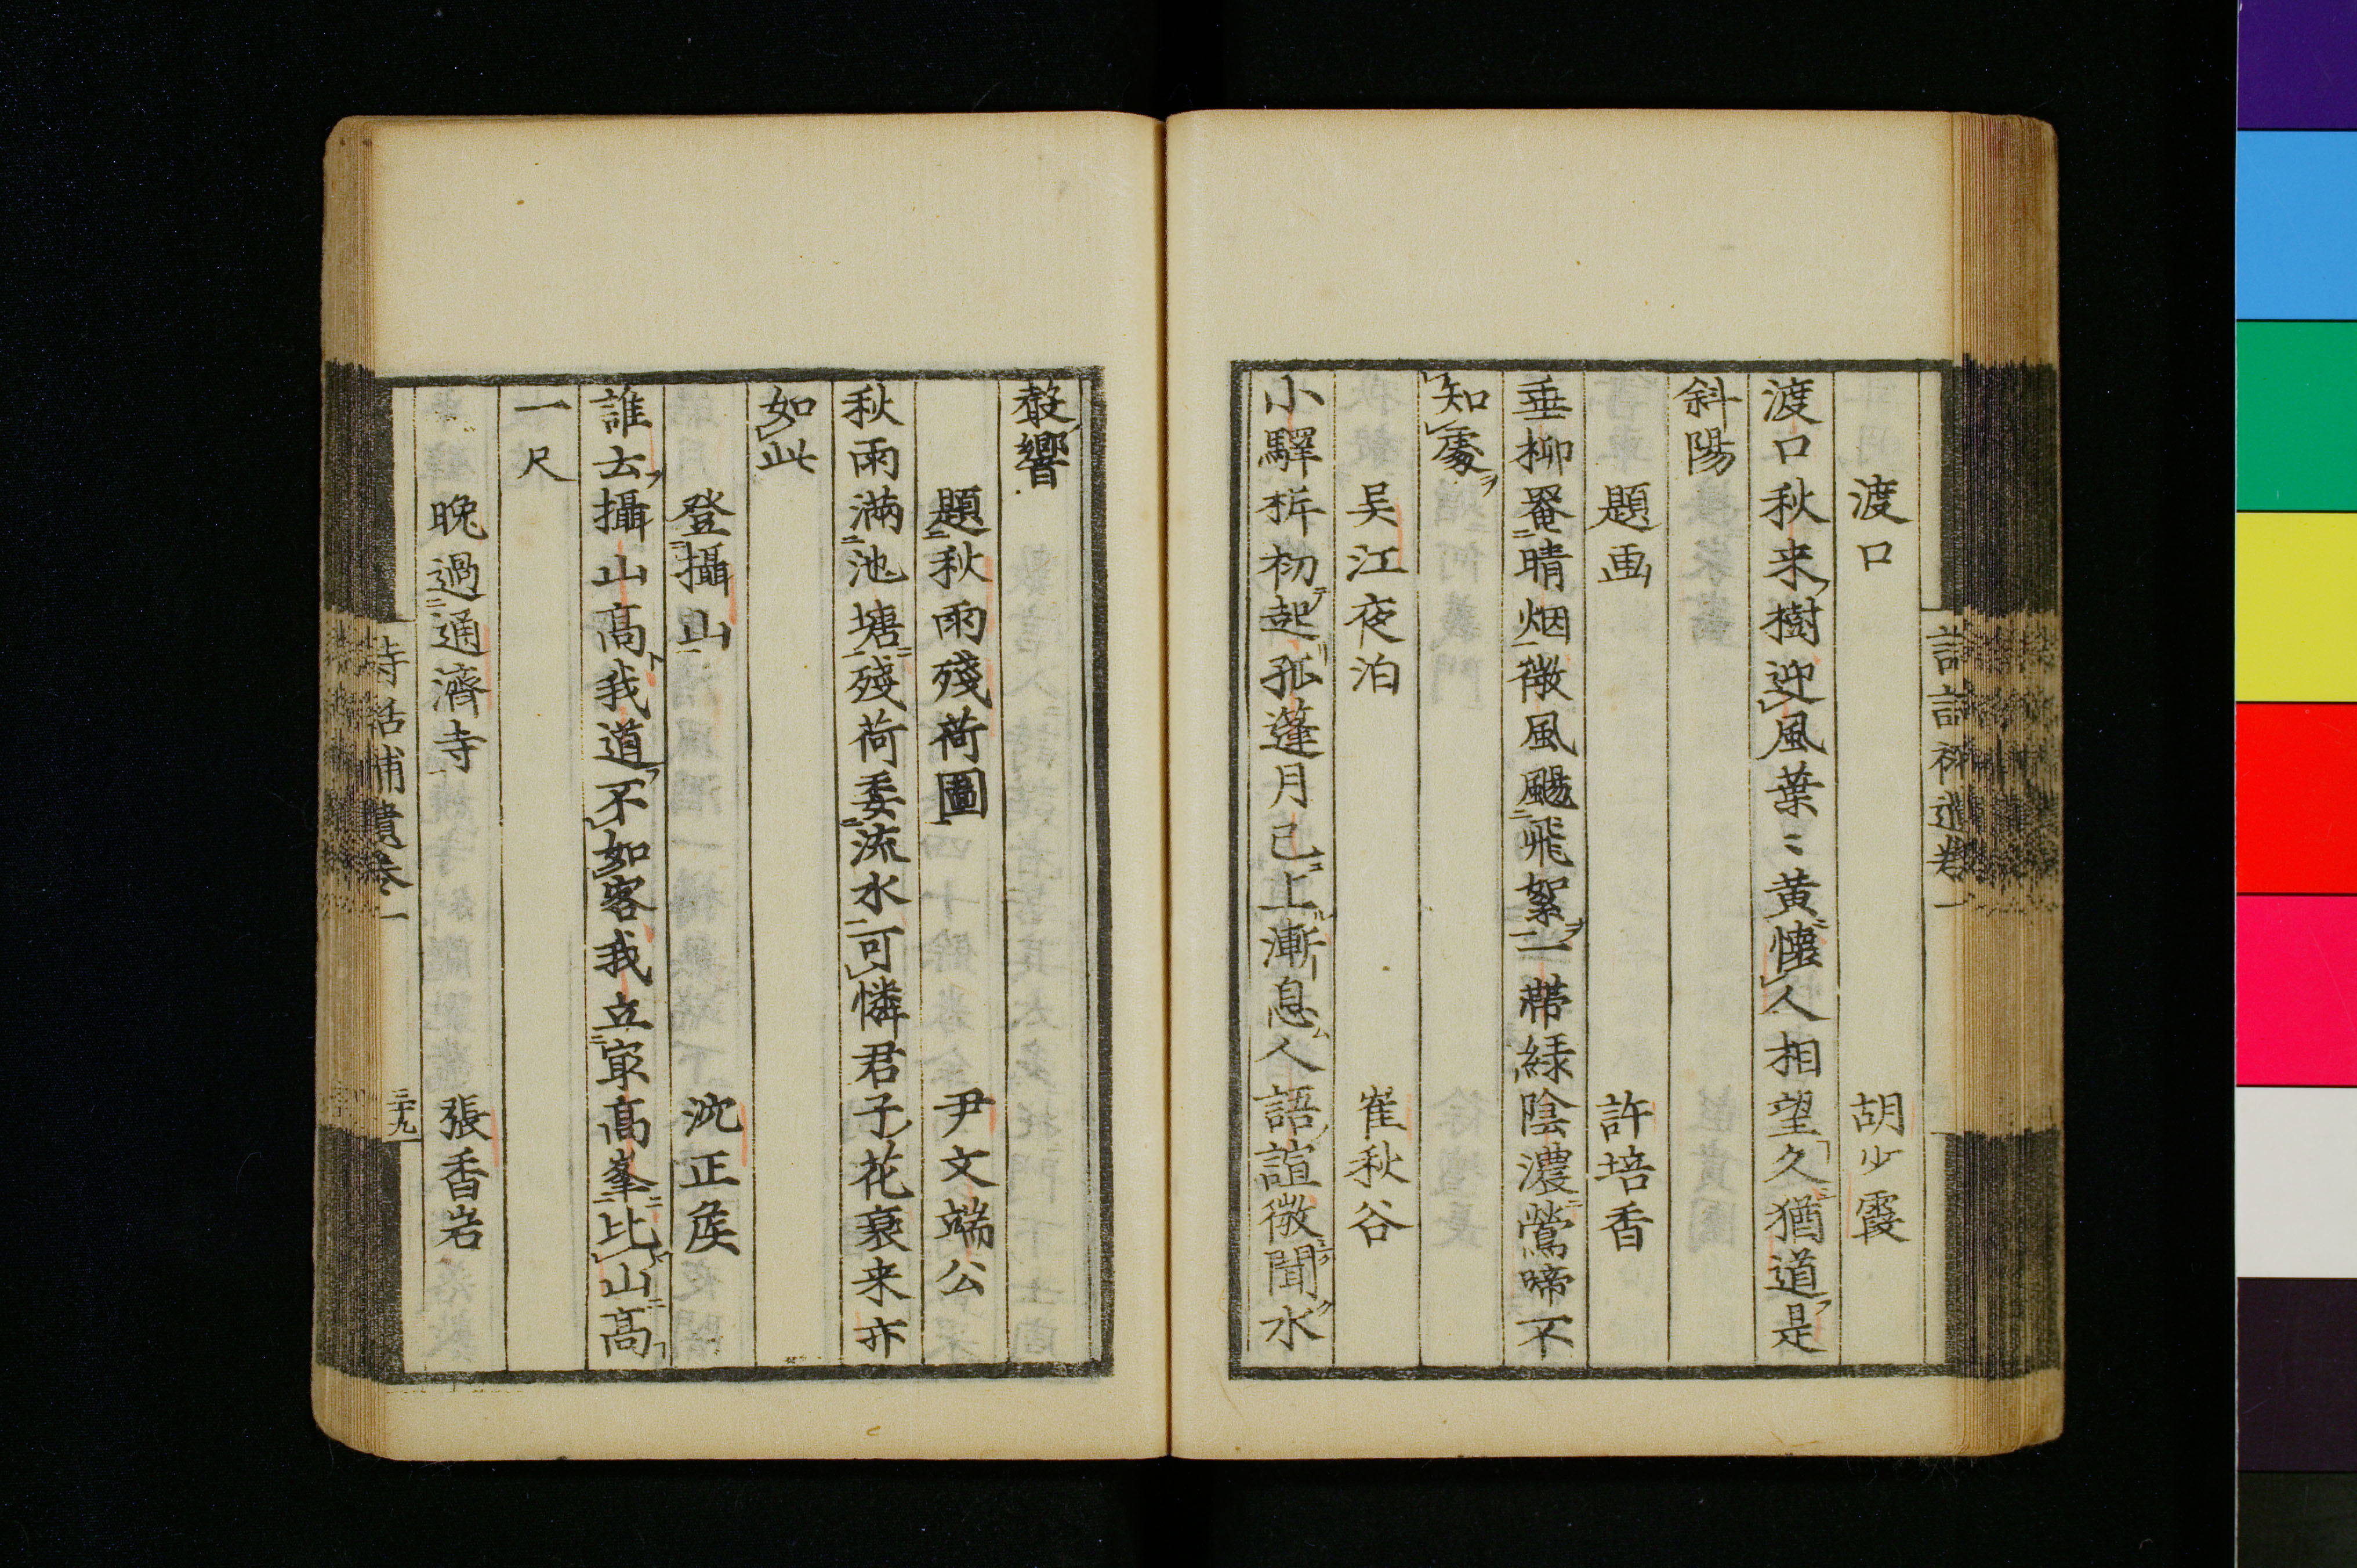 渡口　胡少霞
渡口秋来樹迎風葉〻黄懐人相望久猶道是
斜陽
題画　許培香
垂柳罨晴烟微風颺飛絮一帯緑陰濃鶯啼不
知處
吴江夜泊　崔秋谷
小驛柝初起孤蓬月已上漸息人語諠微聞水
聲響
題秋雨殘荷圖　尹文端公
秋雨滿池塘殘荷委流水可憐君子花衰来亦
如此
登攝山　沈正矦
誰云攝山高我道不如客我立冣高峯比山高
一尺
晚過通濟寺　張香岩
詩話補遺卷一
三十九